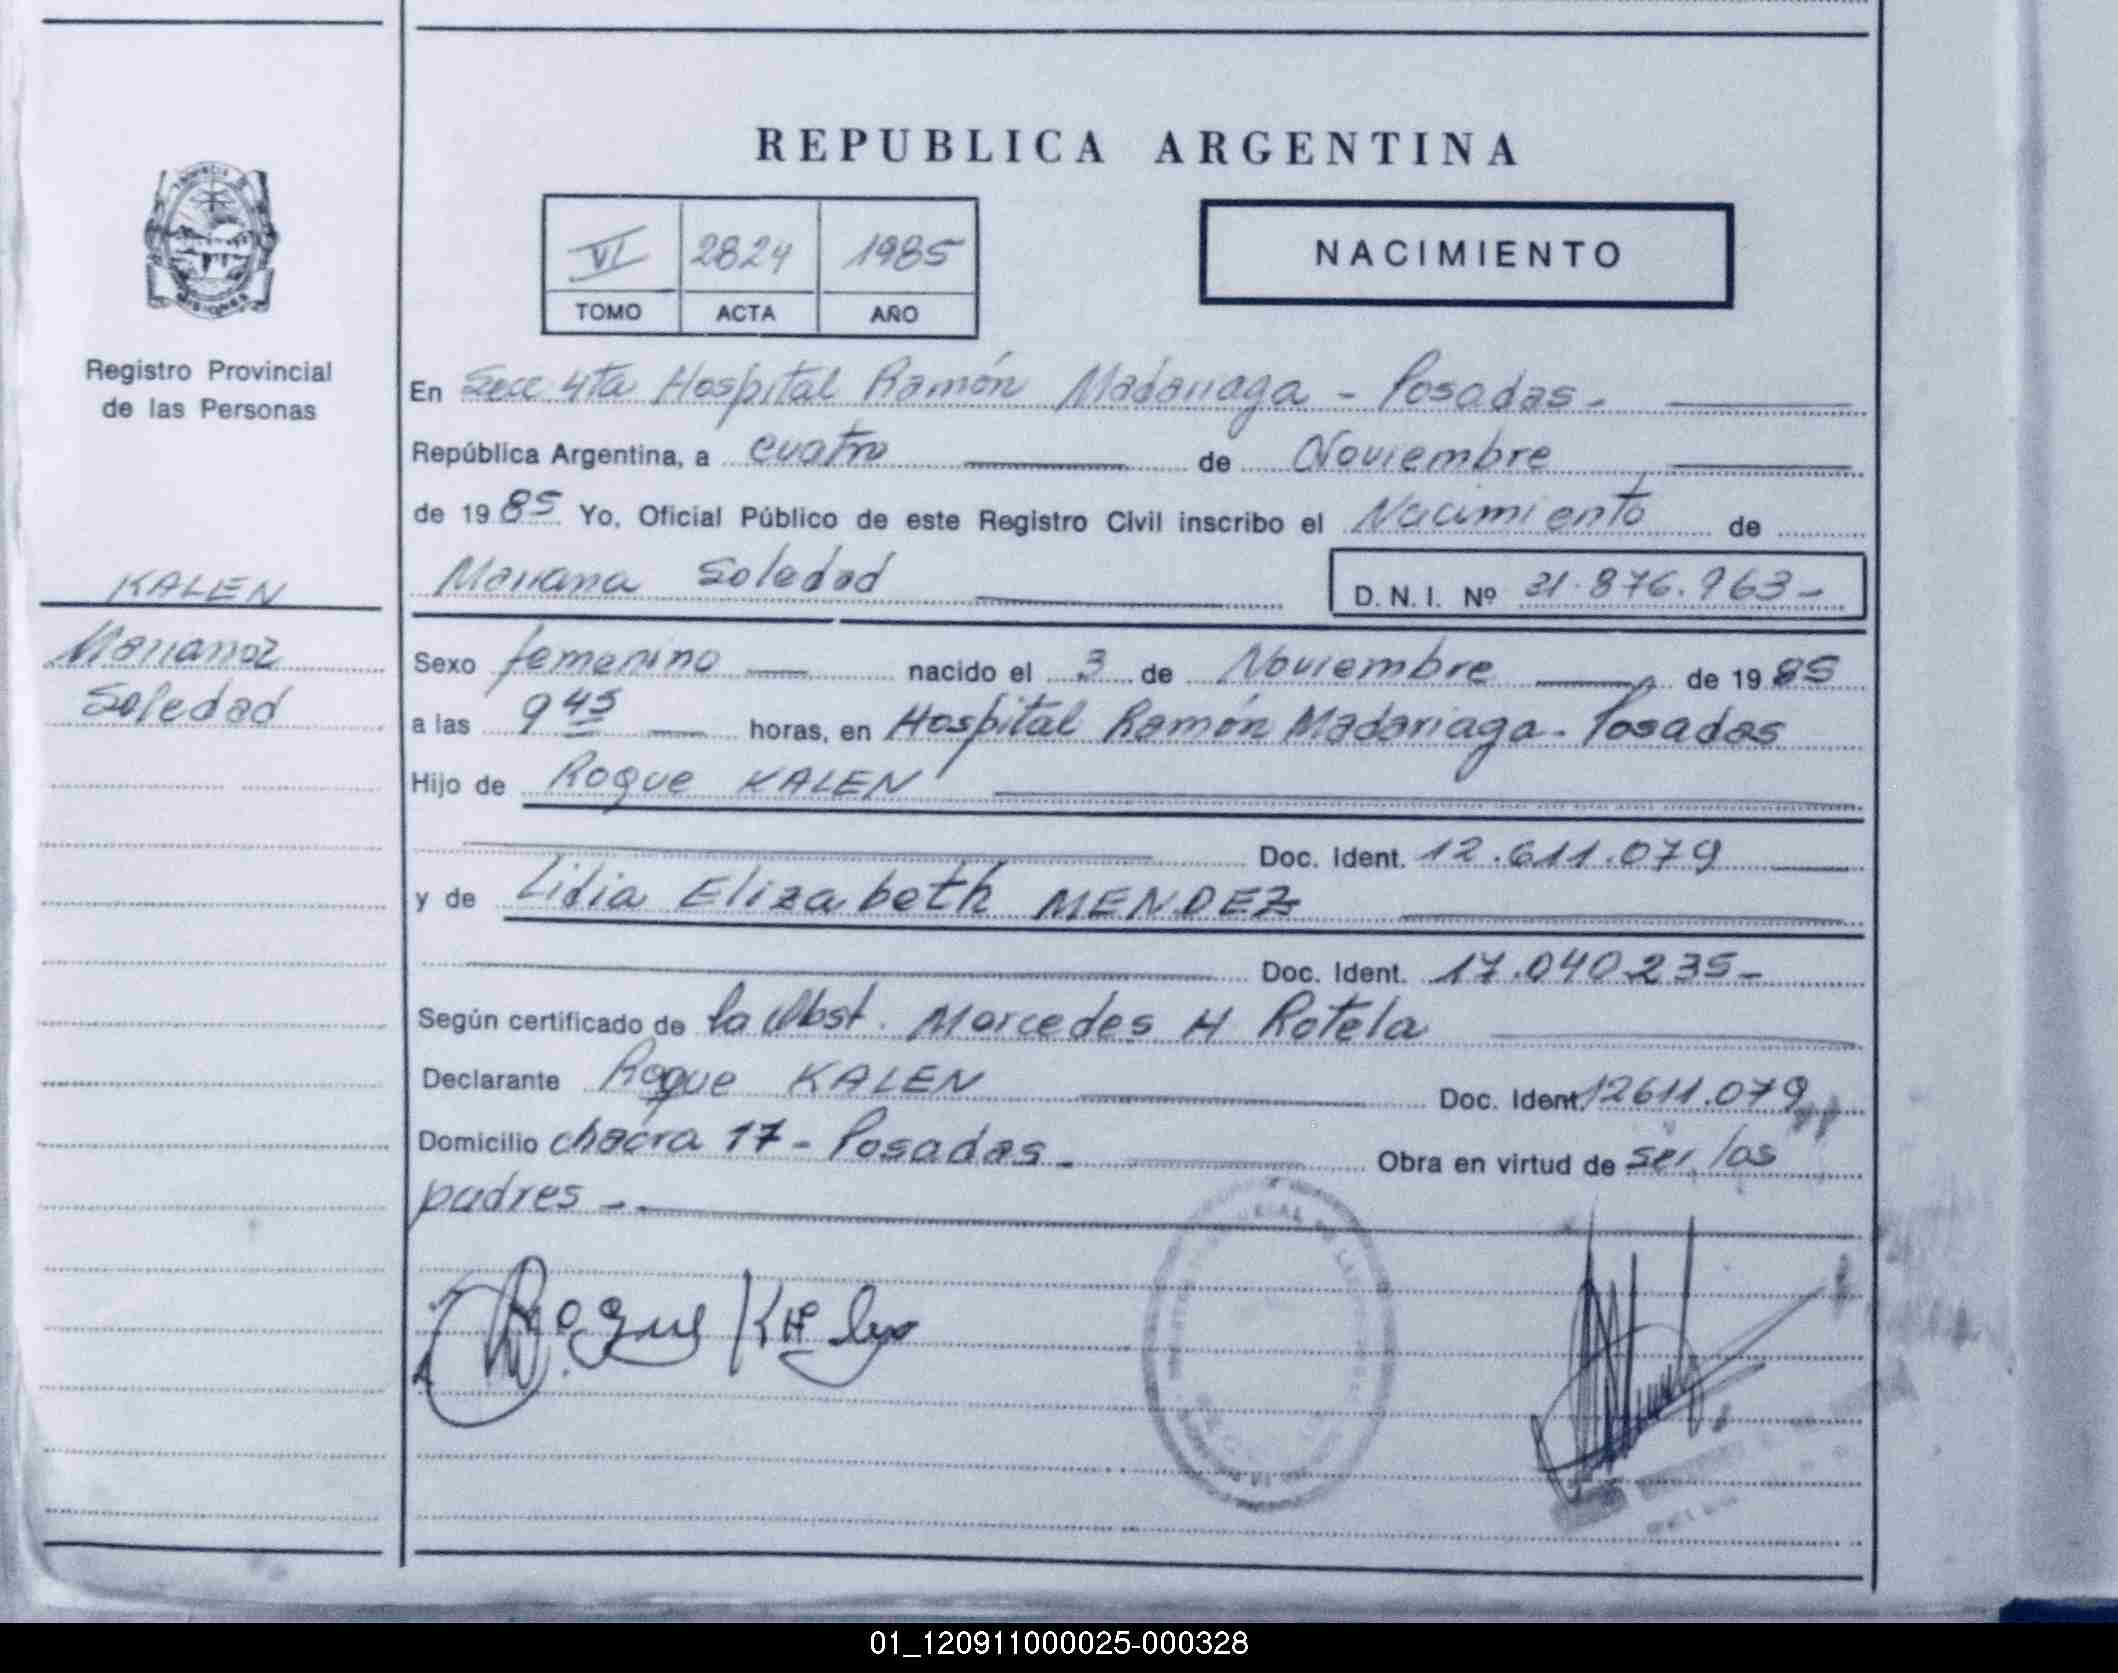 REPUBLICA ARGENTINA
VI 2824 1985
TOMO ACTA AÑO
NACIMIENTO
Registro Provincial
de las Personas
KALEN
Mariana
Soledad
En Secc 4ta Hospital Ramón Madariaga - Posadas -
República Argentina, a cuatro de Noviembre
de 1985 Yo, Oficial Público de este Registro Civil inscribo el Nacimiento de
Mariana Soledad D.N.I. Nº 31.876.963-
Sexo femenino nacido el 3 de Noviembre de 1985
a las 9 45 horas, en Hospital Ramón Madariaga - Posadas
Hijo de Roque KALEN
Doc. Ident. 12.611.079
y de Lidia Elizabeth MENDEZ
Doc. Ident. 17.040.235-
Según certificado de la Obst. Mercedes H Rotela
Declarante Roque KALEN Doc. Ident. 12611.079
Domicilio chacra 17 - Posadas - Obra en virtud de ser los
padres -
Roque
01_120911000025-000328